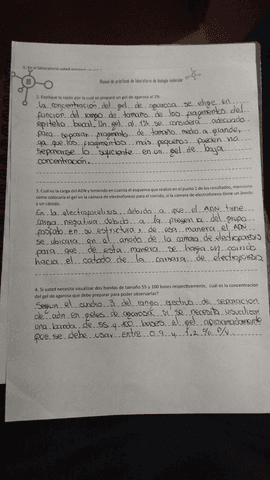 Manual de prácticas de laboratorio de biología molecular
2. Explique la razón por la cual se preparó un gel de agarosa al 1%
La concentración del gel de agarosa se elige en
función del rango de tamaño de los fragmentos del
epitelio bucal. Un gel al 1% se considera adecuado
para separar fragmentos de tamaño medio a grande,
ya que los fragmentos más pequeños pueden no
separarse lo suficiente en un gel de baja
concentración.
3. Cuál es la carga del ADN y teniendo en cuenta el esquema que realizó en el punto 1 de los resultados, mencione
cómo colocaría el gel en la cámara de electroforesis para el corrido, si la cámara de electroforesis tiene un ánodo
y un cátodo.
En la electroforesis, debido a que el ADN tiene
carga negativa debido a la presencia del grupo
fosfato en su estructura, de esa manera el ADN
se ubicaría en el ánodo de la cámara de electroforesis
para que de esta manera se haga un corrido
hacia el catodo de la camara de electroforesis
4. Si usted necesita visualizar dos bandas de tamaño 55 y 100 bases respectivamente, cuál es la concentración
del gel de agarosa que debe preparar para poder observarlas?
Según el cuadro 3 del rango efectivo de separación
de adn en geles de agarosa, si se necesita visualizar
una banda de 55 y 100 bases el gel aproximadamente
que se debe usar entre 0.9 y 1.2 % P/V